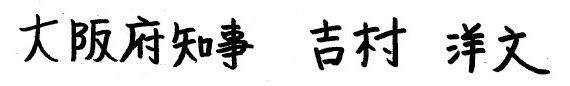 大阪府知事　吉村　洋文